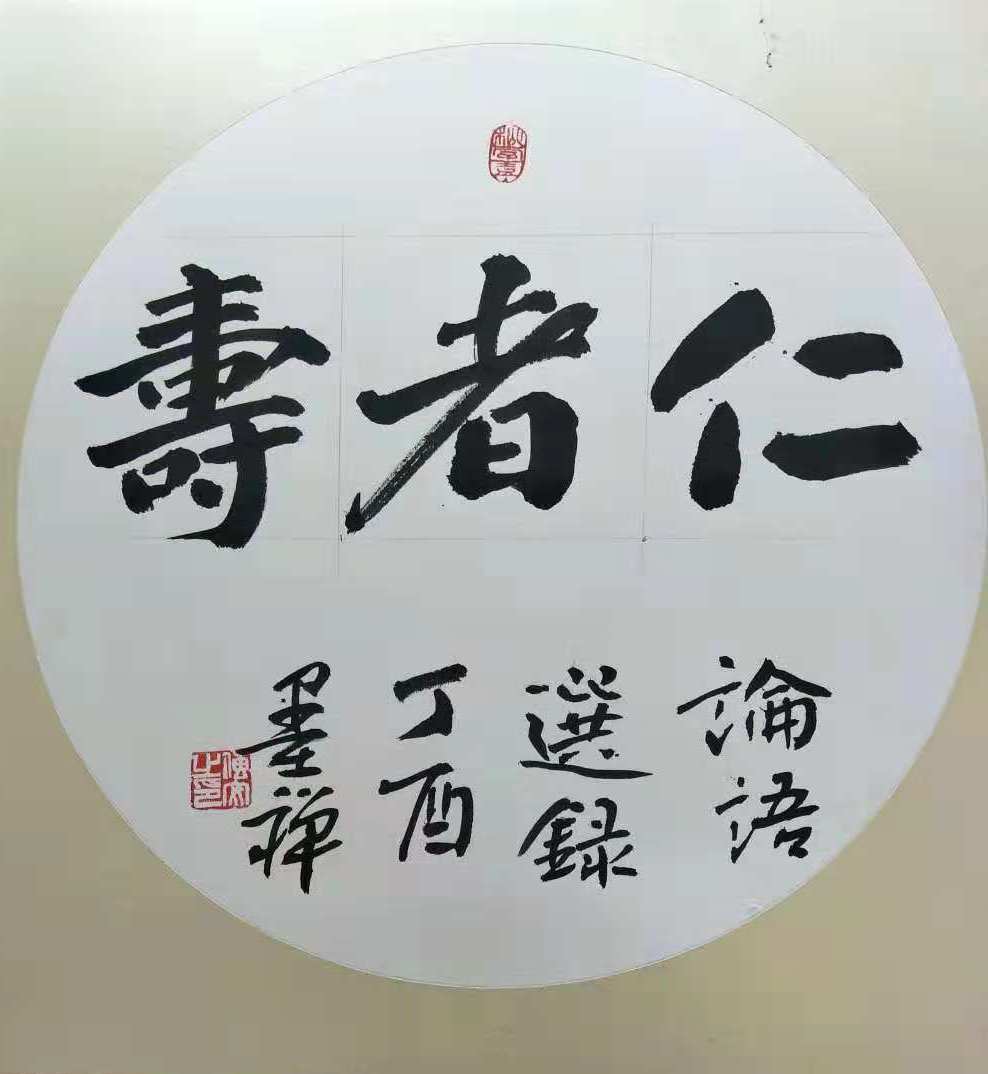 仁者壽
論語
選録
丁酉
墨禅